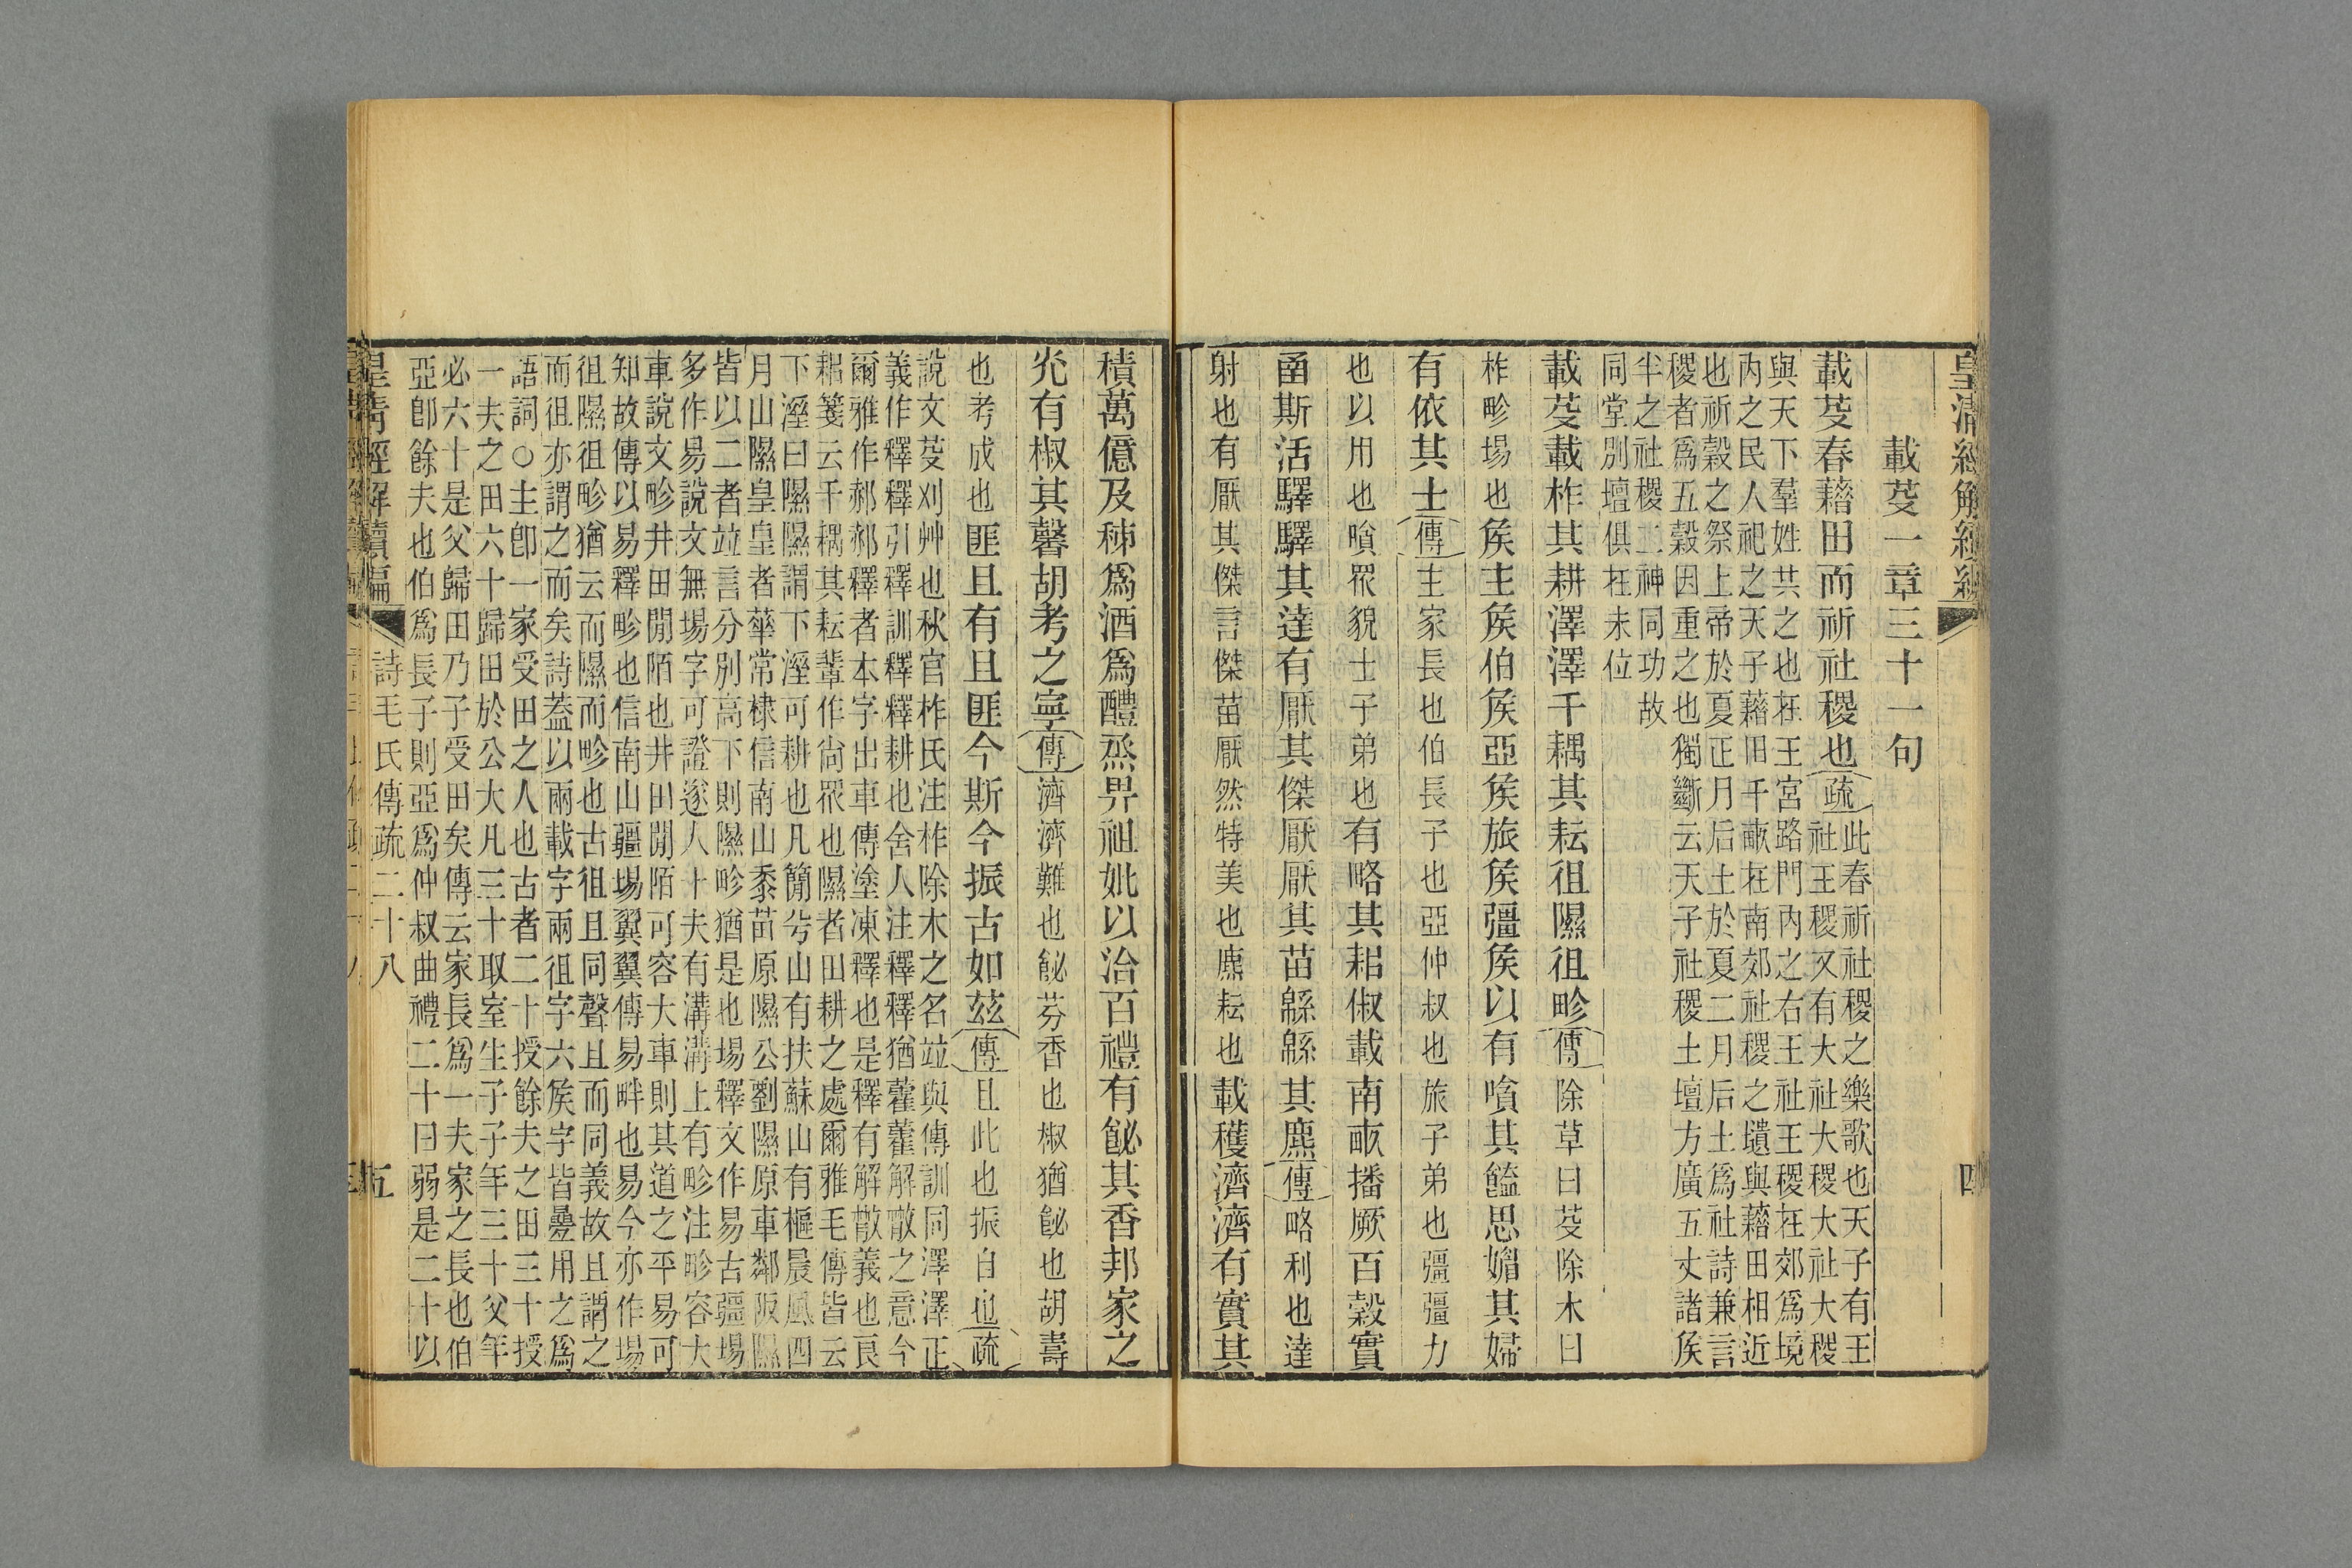 皇清經解續編
四
載芟一章三十一句
載芟春藉田而祈社稷也疏此春祈社稷之樂歌也天子有王
社王稷又有大社大稷大社大稷
與天下羣姓共之也在王宮路門內之右王社王稷在郊爲境
內之民人祀之天子藉田千畝在南郊社稷之壝與藉田相近
也祈穀之祭上帝於夏正月后土於夏二月后土爲社詩兼言
稷者爲五穀因重之也獨斷云天子社稷土壇方廣五丈諸矦
半之社稷二神同功故
同堂別壇俱在未位
載芟載柞其耕澤澤千耦其耘徂隰徂畛傳除草曰芟除木曰
柞畛埸也矦主矦伯矦亞矦旅矦彊矦以有嗿其饁思媚其婦
有依其士傳主家長也伯長子也亞仲叔也旅子弟也彊彊力
也以用也嗿眾貌士子弟也有略其耜俶載南畝播厥百穀實
函斯活驛驛其達有厭其傑厭厭其苗緜緜其麃傳略利也達
射也有厭其傑言傑苗厭然特美也麃耘也載穫濟濟有實其
積萬億及秭爲酒爲醴烝畀祖妣以洽百禮有飶其香邦家之
光有椒其馨胡考之寧傳濟濟難也飶芬香也椒猶飶也胡壽
也考成也匪且有且匪今斯今振古如茲傳且此也振自也疏
說文芟刈艸也秋官柞氏注柞除木之名竝與傳訓同澤澤正
義作釋釋引釋訓釋釋耕也舍人注釋釋猶藿藿解散之意今
爾雅作郝郝釋者本字出車傳塗凍釋也是釋有解散義也良
耜箋云千耦其耘輩作尙眾也隰者田耕之處爾雅毛傳皆云
下溼曰隰隰謂下溼可耕也凡簡兮山有扶蘇山有樞晨風四
月山隰皇皇者華常棣信南山黍苗原隰公劉隰原車鄰阪隰
皆以二者竝言分別高下則隰畛猶是也埸釋文作易古疆埸
多作易說文無埸字可證遂人十夫有溝溝上有畛注畛容大
車說文畛井田閒陌也井田閒陌可容大車則其道之平易可
知故傳以易釋畛也信南山疆埸翼翼傳易畔也易今亦作埸
徂隰徂畛猶云而隰而畛也古徂且同聲且而同義故且謂之
而徂亦謂之而矣詩葢以兩載字兩徂字六矦字皆曡用之爲
語詞○主卽一家受田之人也古者二十授餘夫之田三十授
一夫之田六十歸田於公大凡三十取室生子子年三十父年
必六十是父歸田乃子受田矣傳云家長爲一夫家之長也伯
亞卽餘夫也伯爲長子則亞爲仲叔曲禮二十曰弱是二十以
皇清經解續編 詩毛氏傳疏二十八 五